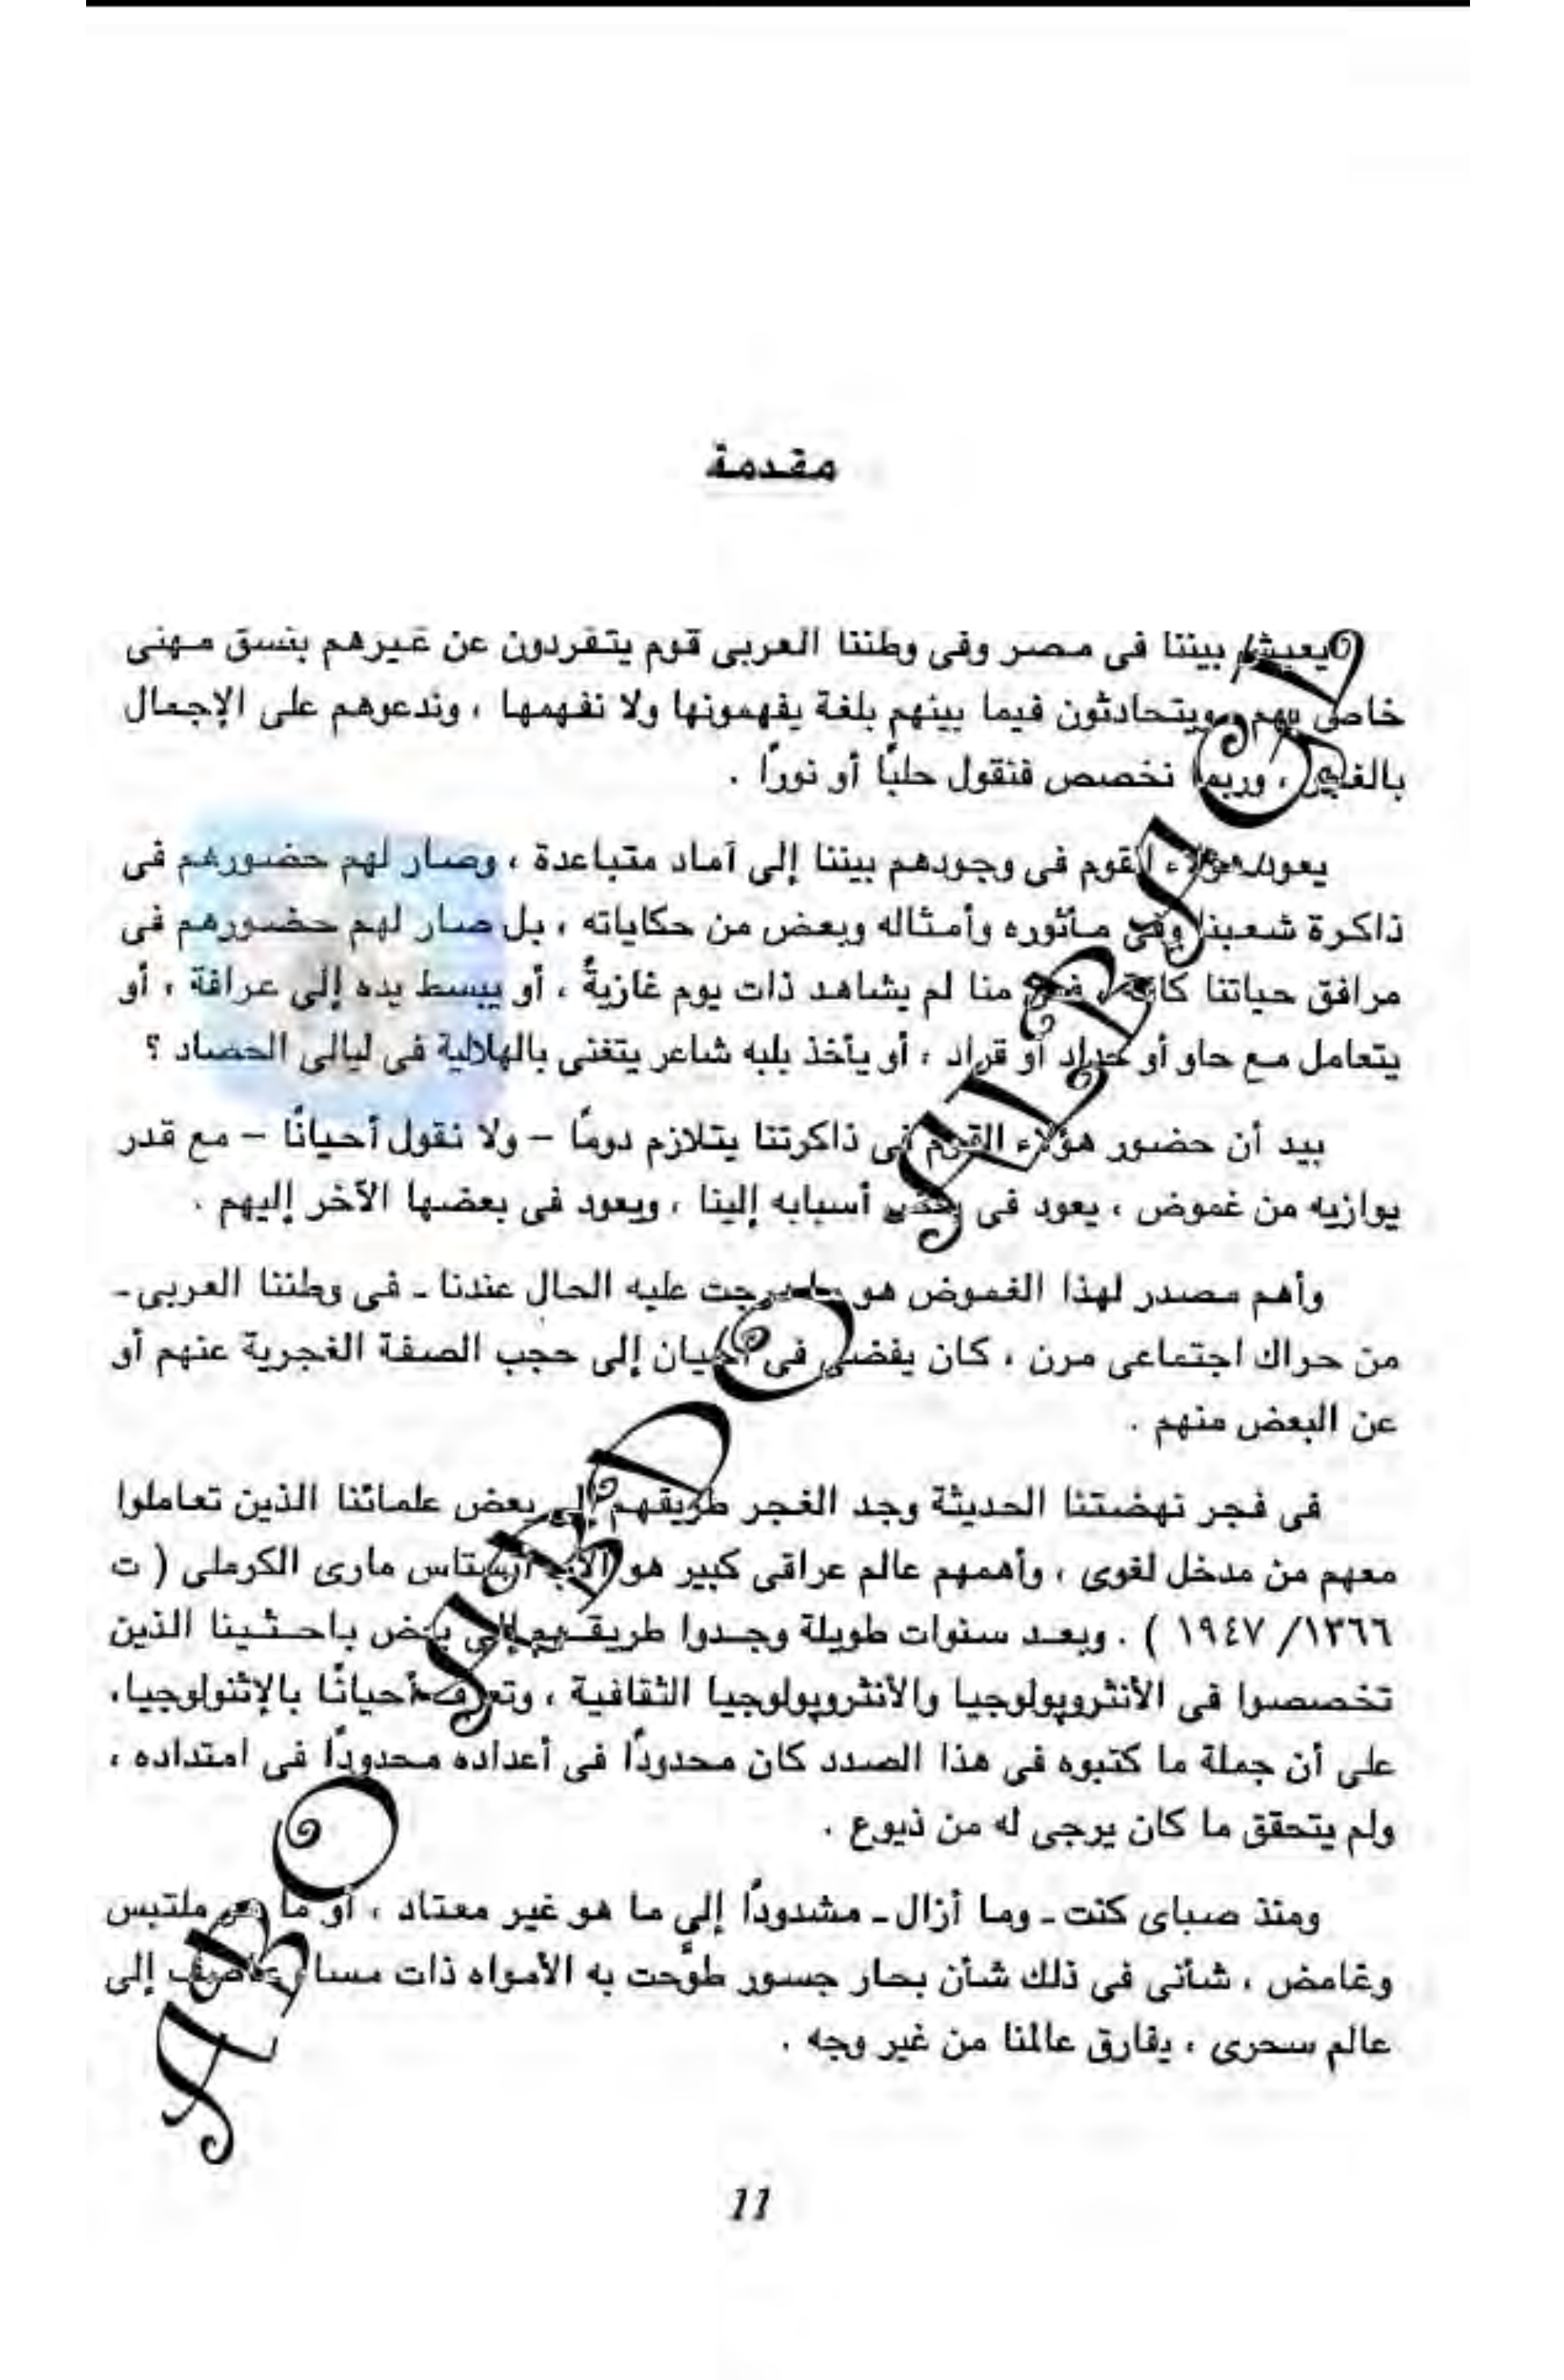 مقدمة
يعيش بيننا فى مصر وفى وطننا العربى قوم يتفردون عن غيرهم بنسق مهنى
خاص بهم ويتحادثون فيما بينهم بلغة يفهمونها ولا نفهمها ، وندعوهم على الإجمال
بالغجر ، وربما نخصص فنقول حلبًا أو نورًا .
يعود هؤلاء القوم فى وجودهم بيننا إلى آماد متباعدة ، وصار لهم حضورهم فى
ذاكرة شعبنا وفى مأثوره وأمثاله وبعض من حكاياته ، بل صار لهم حضورهم فى
مرافق حياتنا كافة ، فمن منا لم يشاهد ذات يوم غازيةً ، أو يبسط يده إلى عرافة ، أو
يتعامل مع حاو أو حداد أو قراد ، أو يأخذ بلبه شاعر يتغنى بالهلالية فى ليالى الحصاد ؟
بيد أن حضور هؤلاء القوم فى ذاكرتنا يتلازم دومًا – ولا نقول أحيانًا – مع قدر
يوازيه من غموض ، يعود فى بعض أسبابه إلينا ، ويعود فى بعضها الآخر إليهم .
وأهم مصدر لهذا الغموض هو ما درجت عليه الحال عندنا ـ فى وطننا العربى ـ
من حراك اجتماعى مرن ، كان يفضى فى أحيان إلى حجب الصفة الغجرية عنهم أو
عن البعض منهم .
فى فجر نهضتنا الحديثة وجد الغجر طريقهم إلى بعض علمائنا الذين تعاملوا
معهم من مدخل لغوى ، وأهمهم عالم عراقى كبير هو الأب أنستاس مارى الكرملى ( ت
١٣٦٦/ ١٩٤٧ ) . وبعد سنوات طويلة وجدوا طريقهم إلى بعض باحثينا الذين
تخصصوا فى الأنثروپولوجيا والأنثروپولوجيا الثقافية ، وتعرف أحيانًا بالإثنولوجيا،
على أن جملة ما كتبوه فى هذا الصدد كان محدودًا فى أعداده محدودًا فى امتداده ،
ولم يتحقق ما كان يرجى له من ذيوع .
ومنذ صباى كنت ـ وما أزال ـ مشدودًا إلى ما هو غير معتاد ، أو ما هو ملتبس
وغامض ، شأنى فى ذلك شأن بحار جسور طوَّحت به الأمواه ذات مساء عاصف إلى
عالم سحرى ، يفارق عالمنا من غير وجه .
ABO ABDO ALBAGL
11